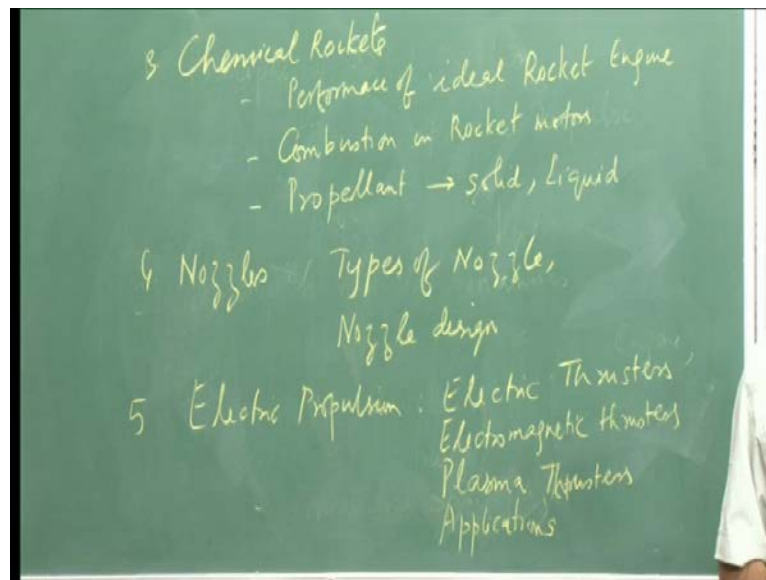 3 Chemical Rockets
- Performace of ideal Rocket Engine
- Combustion in Rocket motors
- Propellant → solid, Liquid
4 Nozzles Types of Nozzle,
Nozzle design
5 Electric Propulsion : Electric Thrusters,
Electromagnetic thrusters
Plasma Thrusters
Applications